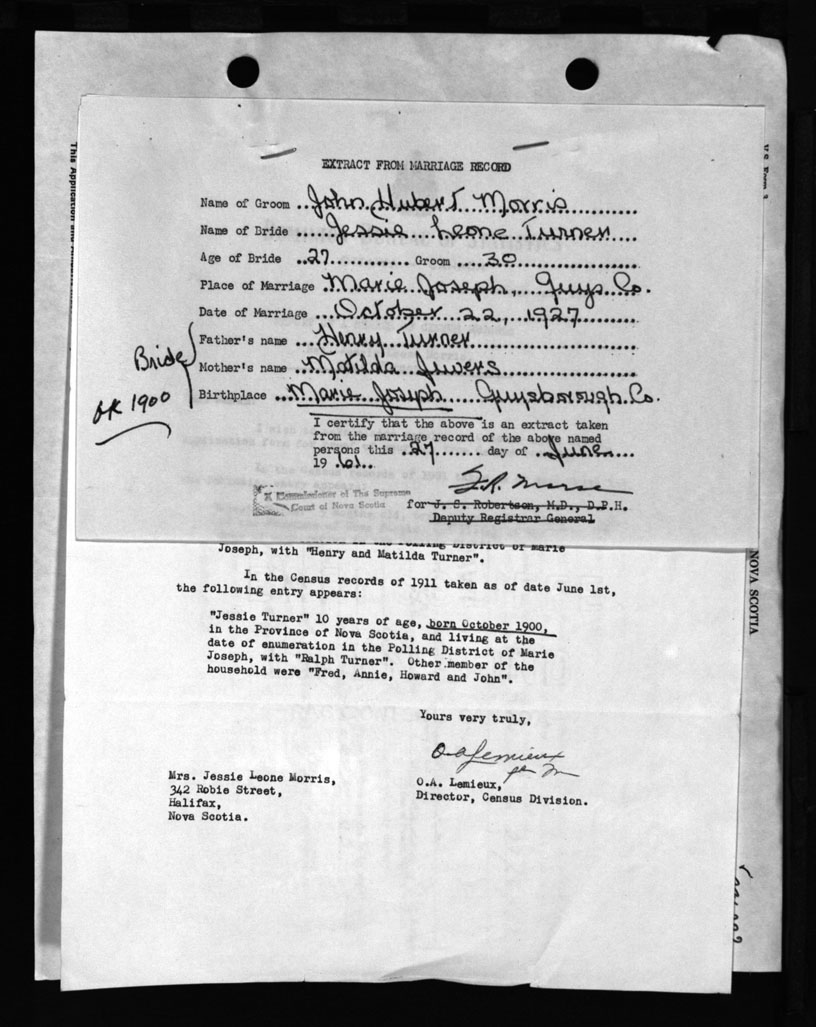 EXTRACT FROM MARRIAGE RECORD
Name of Groom ..John Hubert Morris..........
Name of Bride .....Jessie Leone Turner....
Age of Bride ..27............ Groom ....30..................
Place of Marriage .Marie Joseph, Guys. Co.
Date of Marriage ...October 22, 1927.........
Father's name ...Henry Turner...........................
Mother's name ...Matilda Jewers.......................
Birthplace ...Marie Joseph Guysborough Co.
Bride
OK 1900
I certify that the above is an extract taken
from the marriage record of the above named
persons this .27....... day of ..June...
19 .61..
A Commissioner of The Supreme
Court of Nova Scotia
for J. S. Robertson, M.D., D.P.H.
Deputy Registrar General
This Application and
U.S. Form 3
Polling District of Marie
Joseph, with "Henry and Matilda Turner".
In the Census records of 1911 taken as of date June 1st,
the following entry appears:
"Jessie Turner" 10 years of age, born October 1900,
in the Province of Nova Scotia, and living at the
date of enumeration in the Polling District of Marie
Joseph, with "Ralph Turner". Other member of the
household were "Fred, Annie, Howard and John".
Yours very truly,
O.A. Lemieux
O.A. Lemieux,
Director, Census Division.
Mrs. Jessie Leone Morris,
342 Robie Street,
Halifax,
Nova Scotia.
NOVA SCOTIA